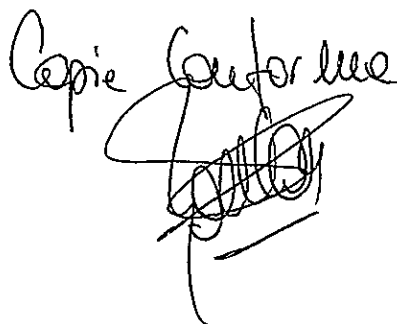 Copie Conforme